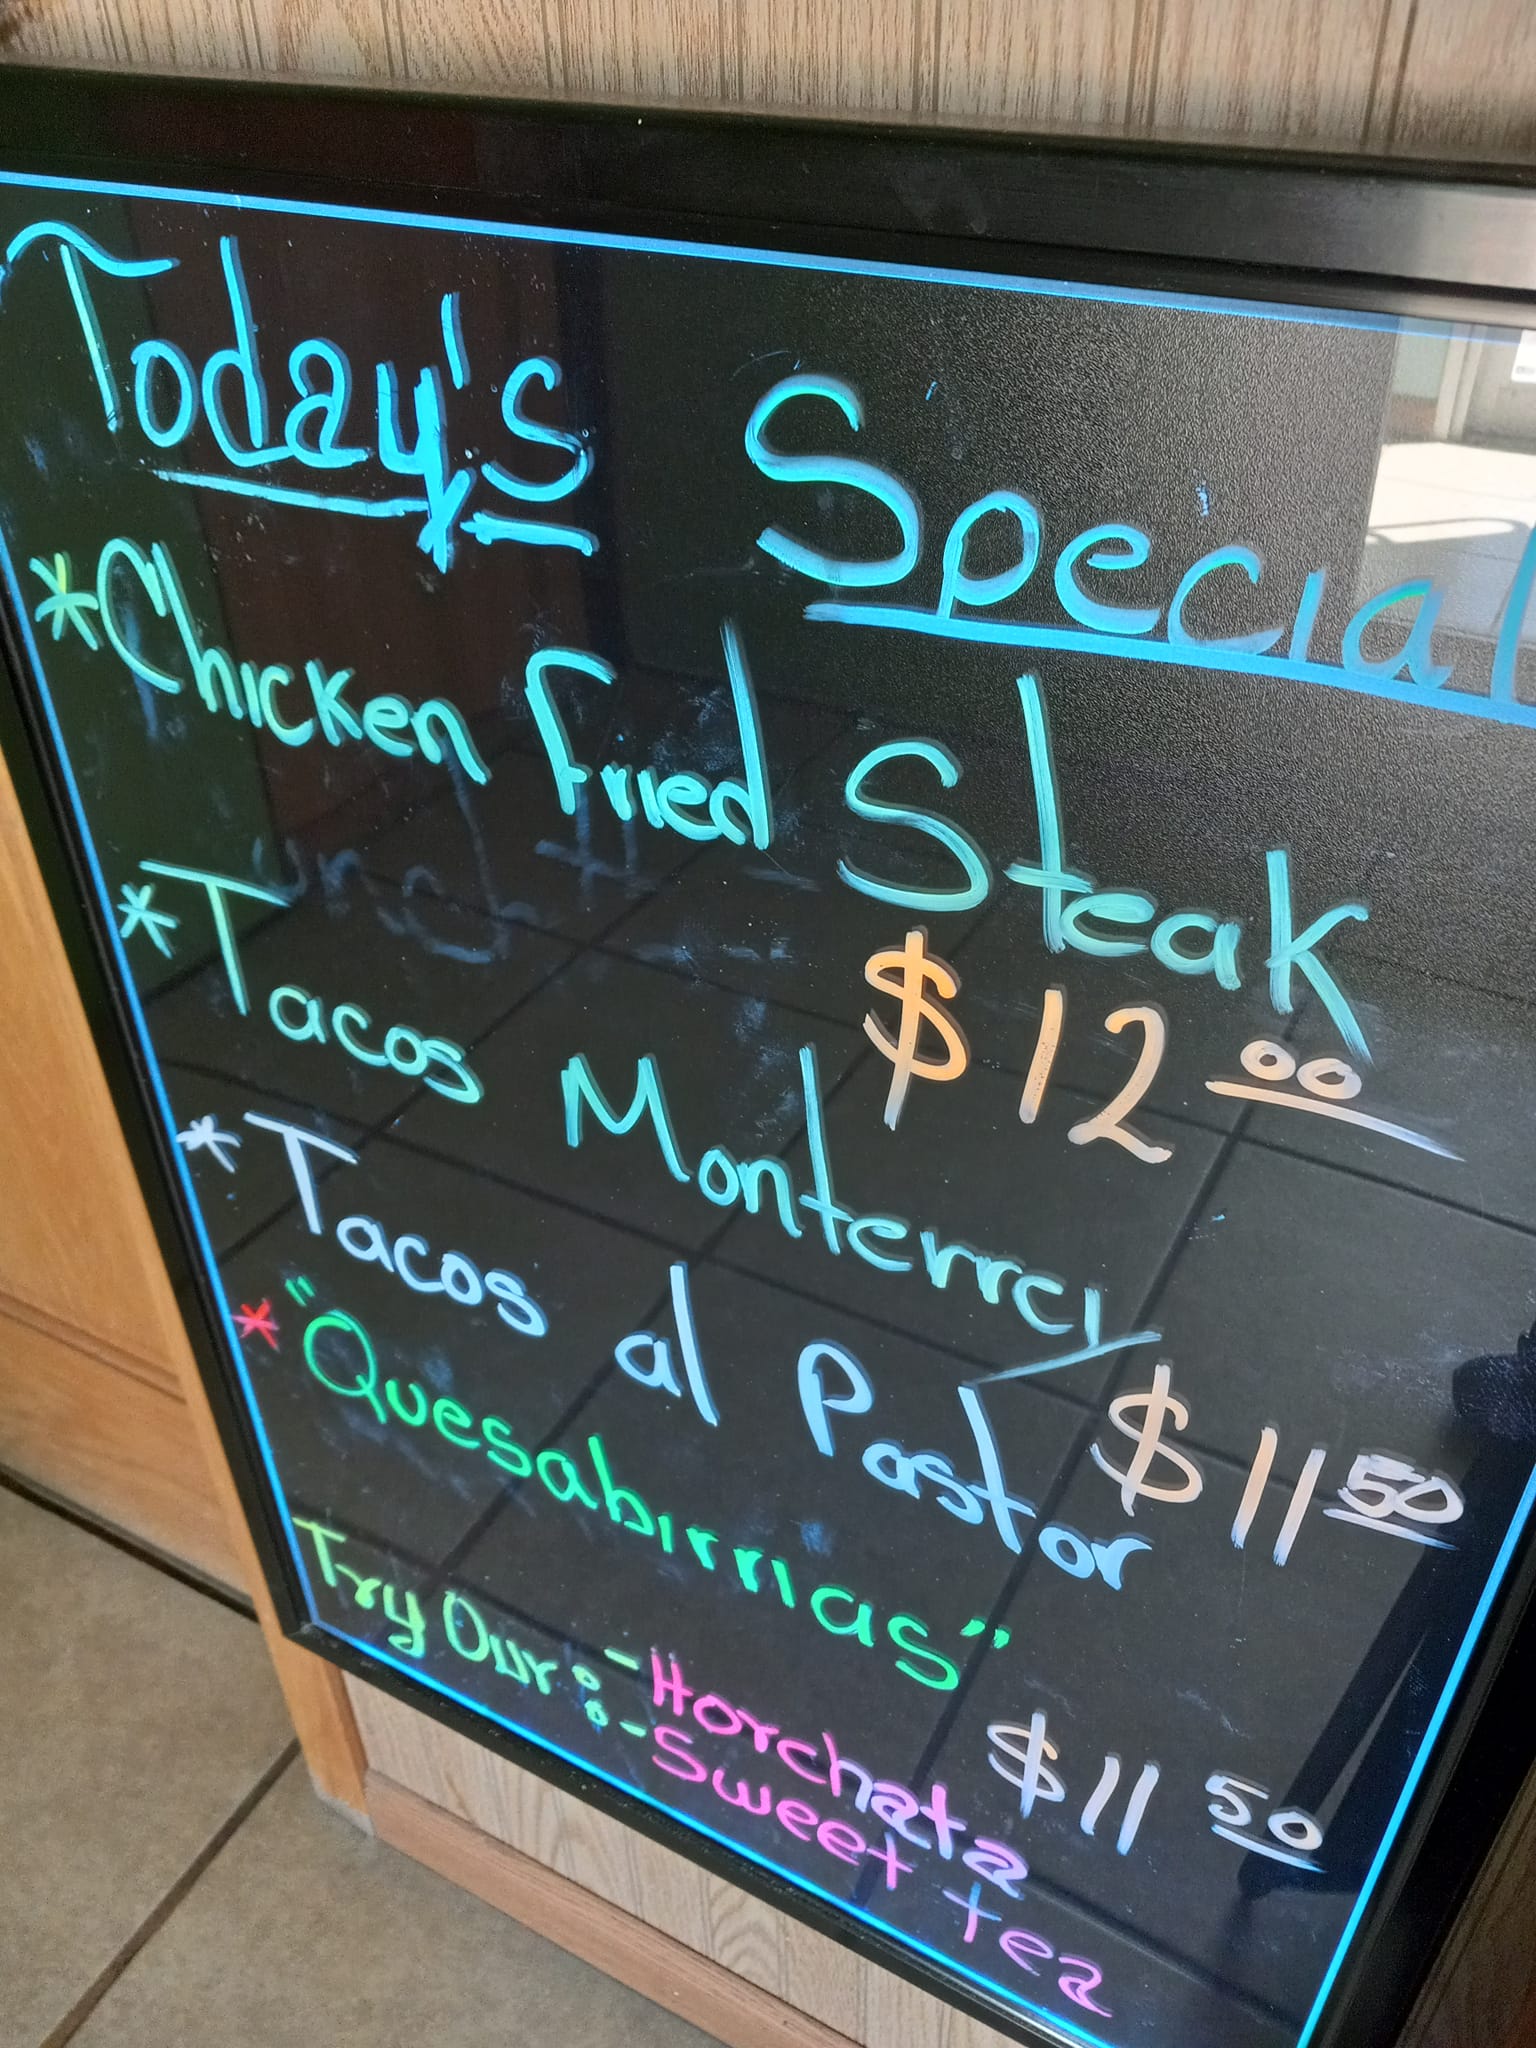 Today's Special
*Chicken Fried Steak
$12 00
*Tacos Monterrey
$11 50
*Tacos al Pastor
*"Quesabirrias"
$11 50
Try Our: -Horchata
-Sweet tea